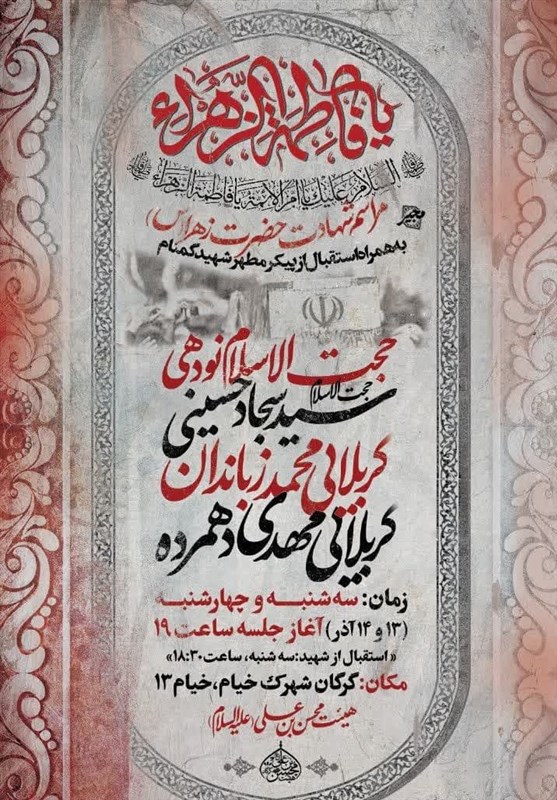 یا فاطمة الزهراء
السلام علیک یا ام الائمة یا فاطمة الزهراء
مراسم شهادت حضرت زهرا(س)
به همراه استقبال از پیکر مطهر شهید گمنام
حجت الاسلام نودهی
حجت الاسلام
سید سجاد حسینی
کربلائی محمد زباندان
کربلائی مهدی دهمرده
زمان: سه شنبه و چهارشنبه
(۱۳ و ۱۴ آذر) آغاز جلسه ساعت ۱۹
«استقبال از شهید: سه شنبه، ساعت ۱۸:۳۰»
مکان: گرگان شهرک خیام، خیام ۱۳
هیئت محسن بن علی (علیه السلام)